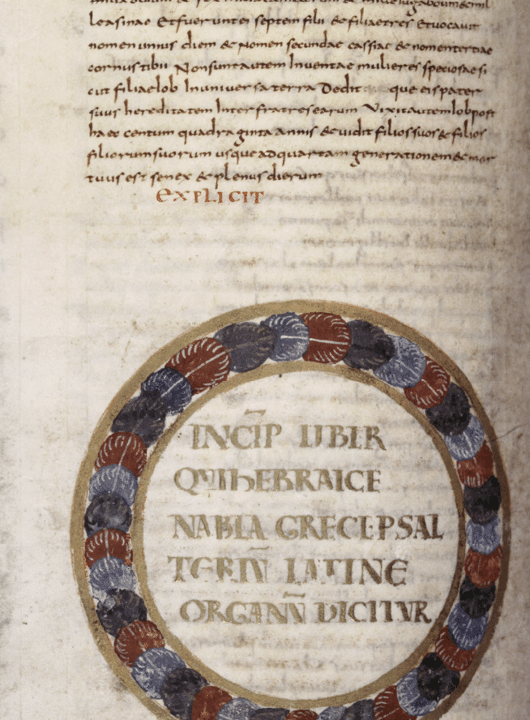 et mille iuga boum & mil
le asinae Et fuerunt ei septem filii & filiae tres Et vocavit
nomen unius diem & nomen secundae cassiae & nomen tertiae
cornustibii Non sunt autem Inventae mulieres speciosae si
cut filiae Iob In universa terra Dedit que eis pater
suus hereditatem Inter fratres earum Vixit autem Iob post
haec centum quadraginta annis & vidit filios suos & filios
filiorum suorum usque ad quartam generationem & mor
tuus est senex & plenus dierum
EXPLICIT
INCĪP LIBER
QUI hEBRAICE
NABLA GRECE PSAL
TERIŪ LATINE
ORGANŪ DICITUR